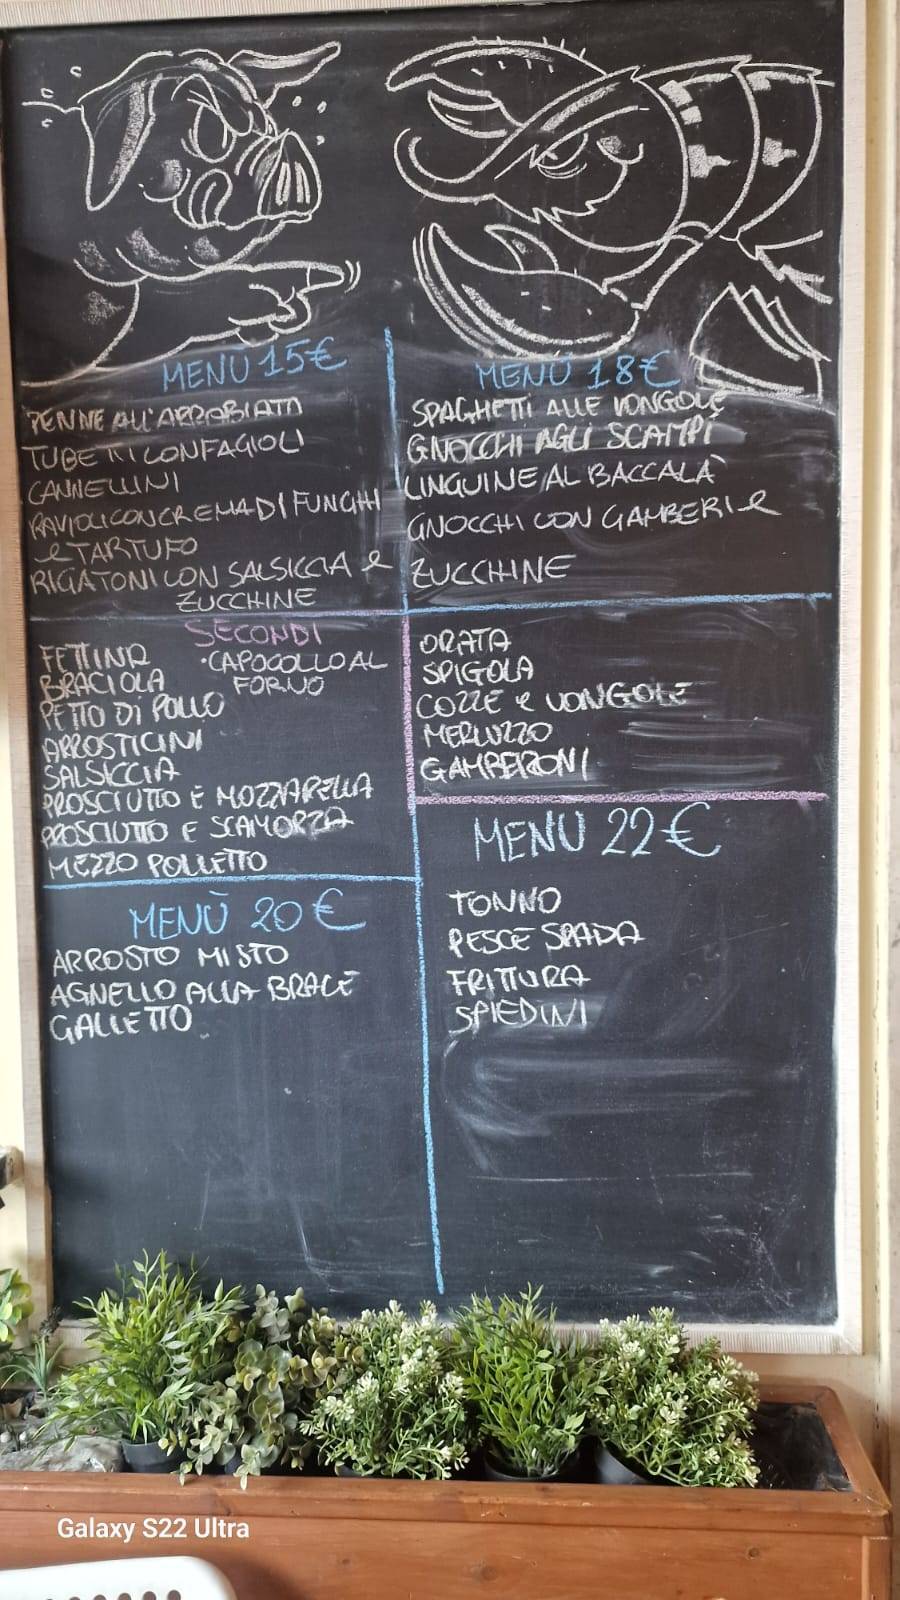 MENÙ 15€
PENNE ALL'ARRABIATA
TUBETTI CON FAGIOLI
CANNELLINI
RAVIOLI CON CREMA DI FUNGHI
e TARTUFO
RIGATONI CON SALSICCIA e
ZUCCHINE
SECONDI
FETTINA
BRACIOLA
PETTO DI POLLO
ARROSTICINI
SALSICCIA
PROSCIUTTO E MOZZARELLA
PROSCIUTTO E SCAMORZA
MEZZO POLLETTO
·CAPOCOLLO AL
FORNO
MENÙ 20€
ARROSTO MISTO
AGNELLO ALLA BRACE
GALLETTO
MENÙ 18€
SPAGHETTI ALLE VONGOLE
GNOCCHI AGLI SCAMPI
LINGUINE AL BACCALÀ
GNOCCHI CON GAMBERI e
ZUCCHINE
ORATA
SPIGOLA
COZZE e VONGOLE
MERLUZZO
GAMBERONI
MENÙ 22€
TONNO
PESCE SPADA
FRITTURA
SPIEDINI
Galaxy S22 Ultra